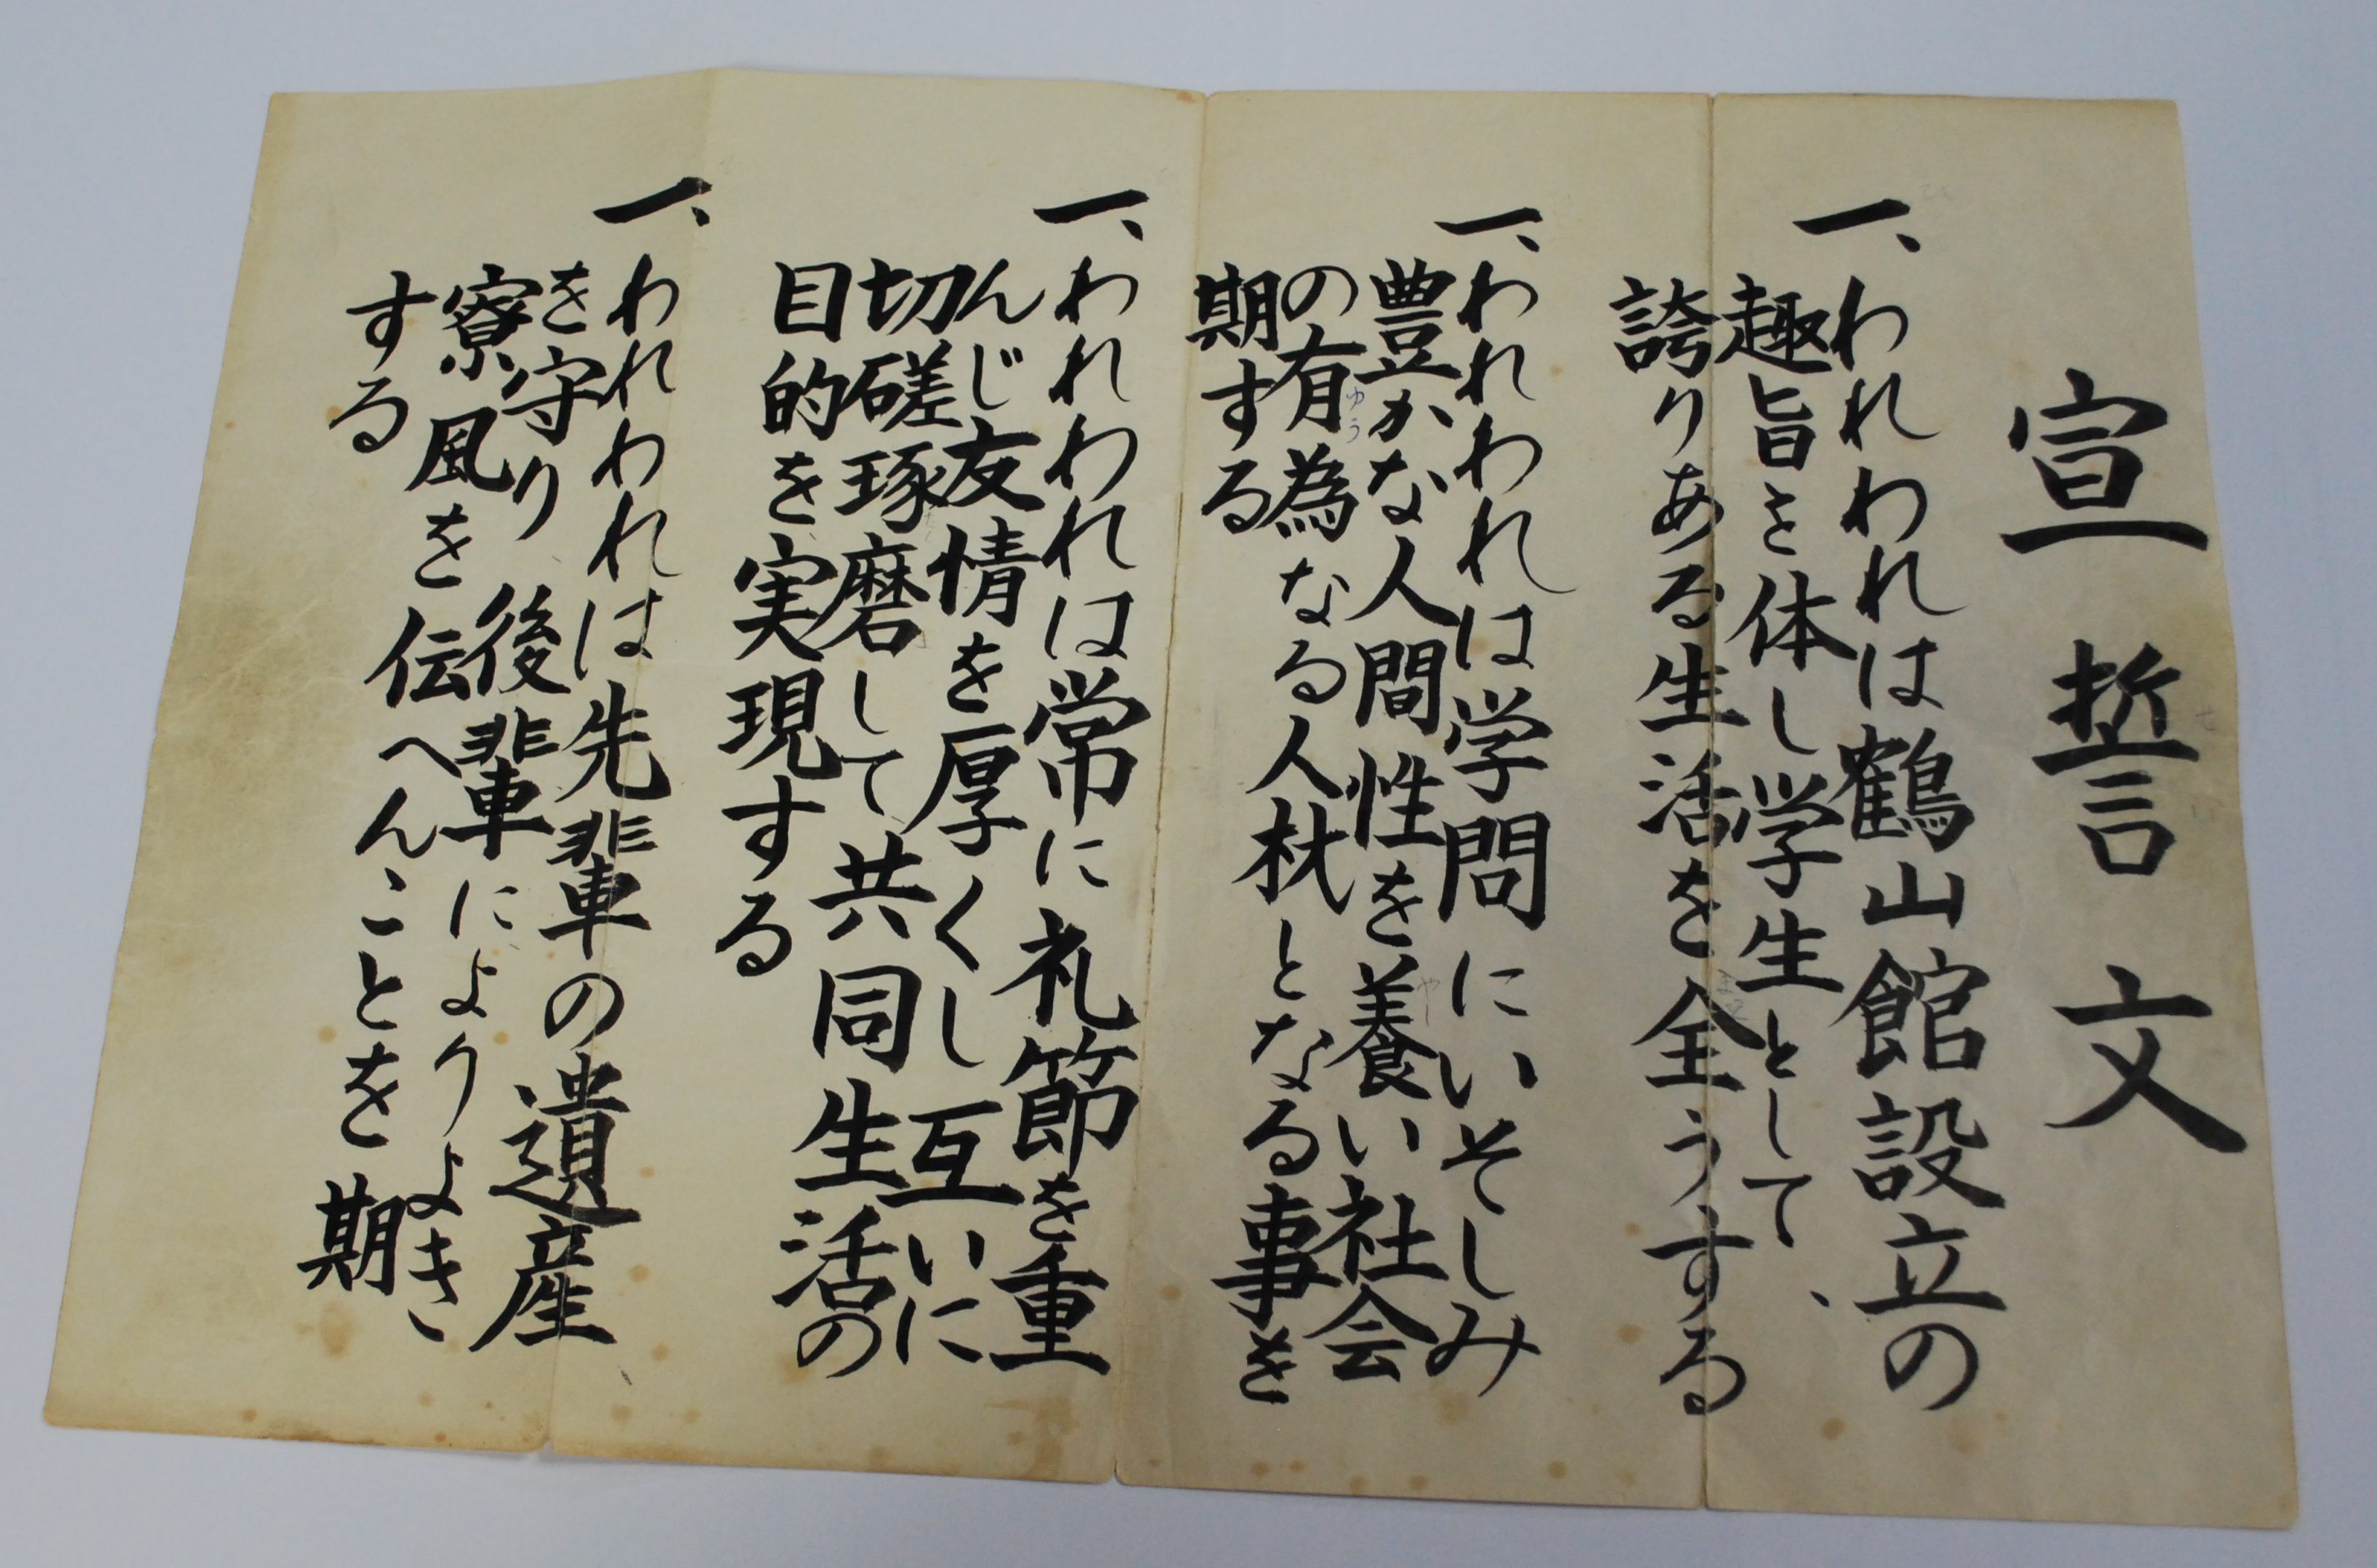 宣誓文
一、われわれは鶴山館設立の
趣旨を体し学生として、
誇りある生活を全うする
一、われわれは学問にいそしみ
豊かな人間性を養い社会
の有為なる人材となる事を
期する
一、われわれは常に礼節を重
んじ友情を厚くし互いに
切磋琢磨して共同生活の
目的を実現する
一、われわれは先輩の遺産
を守り後輩によりよき
寮風を伝へんことを期
する